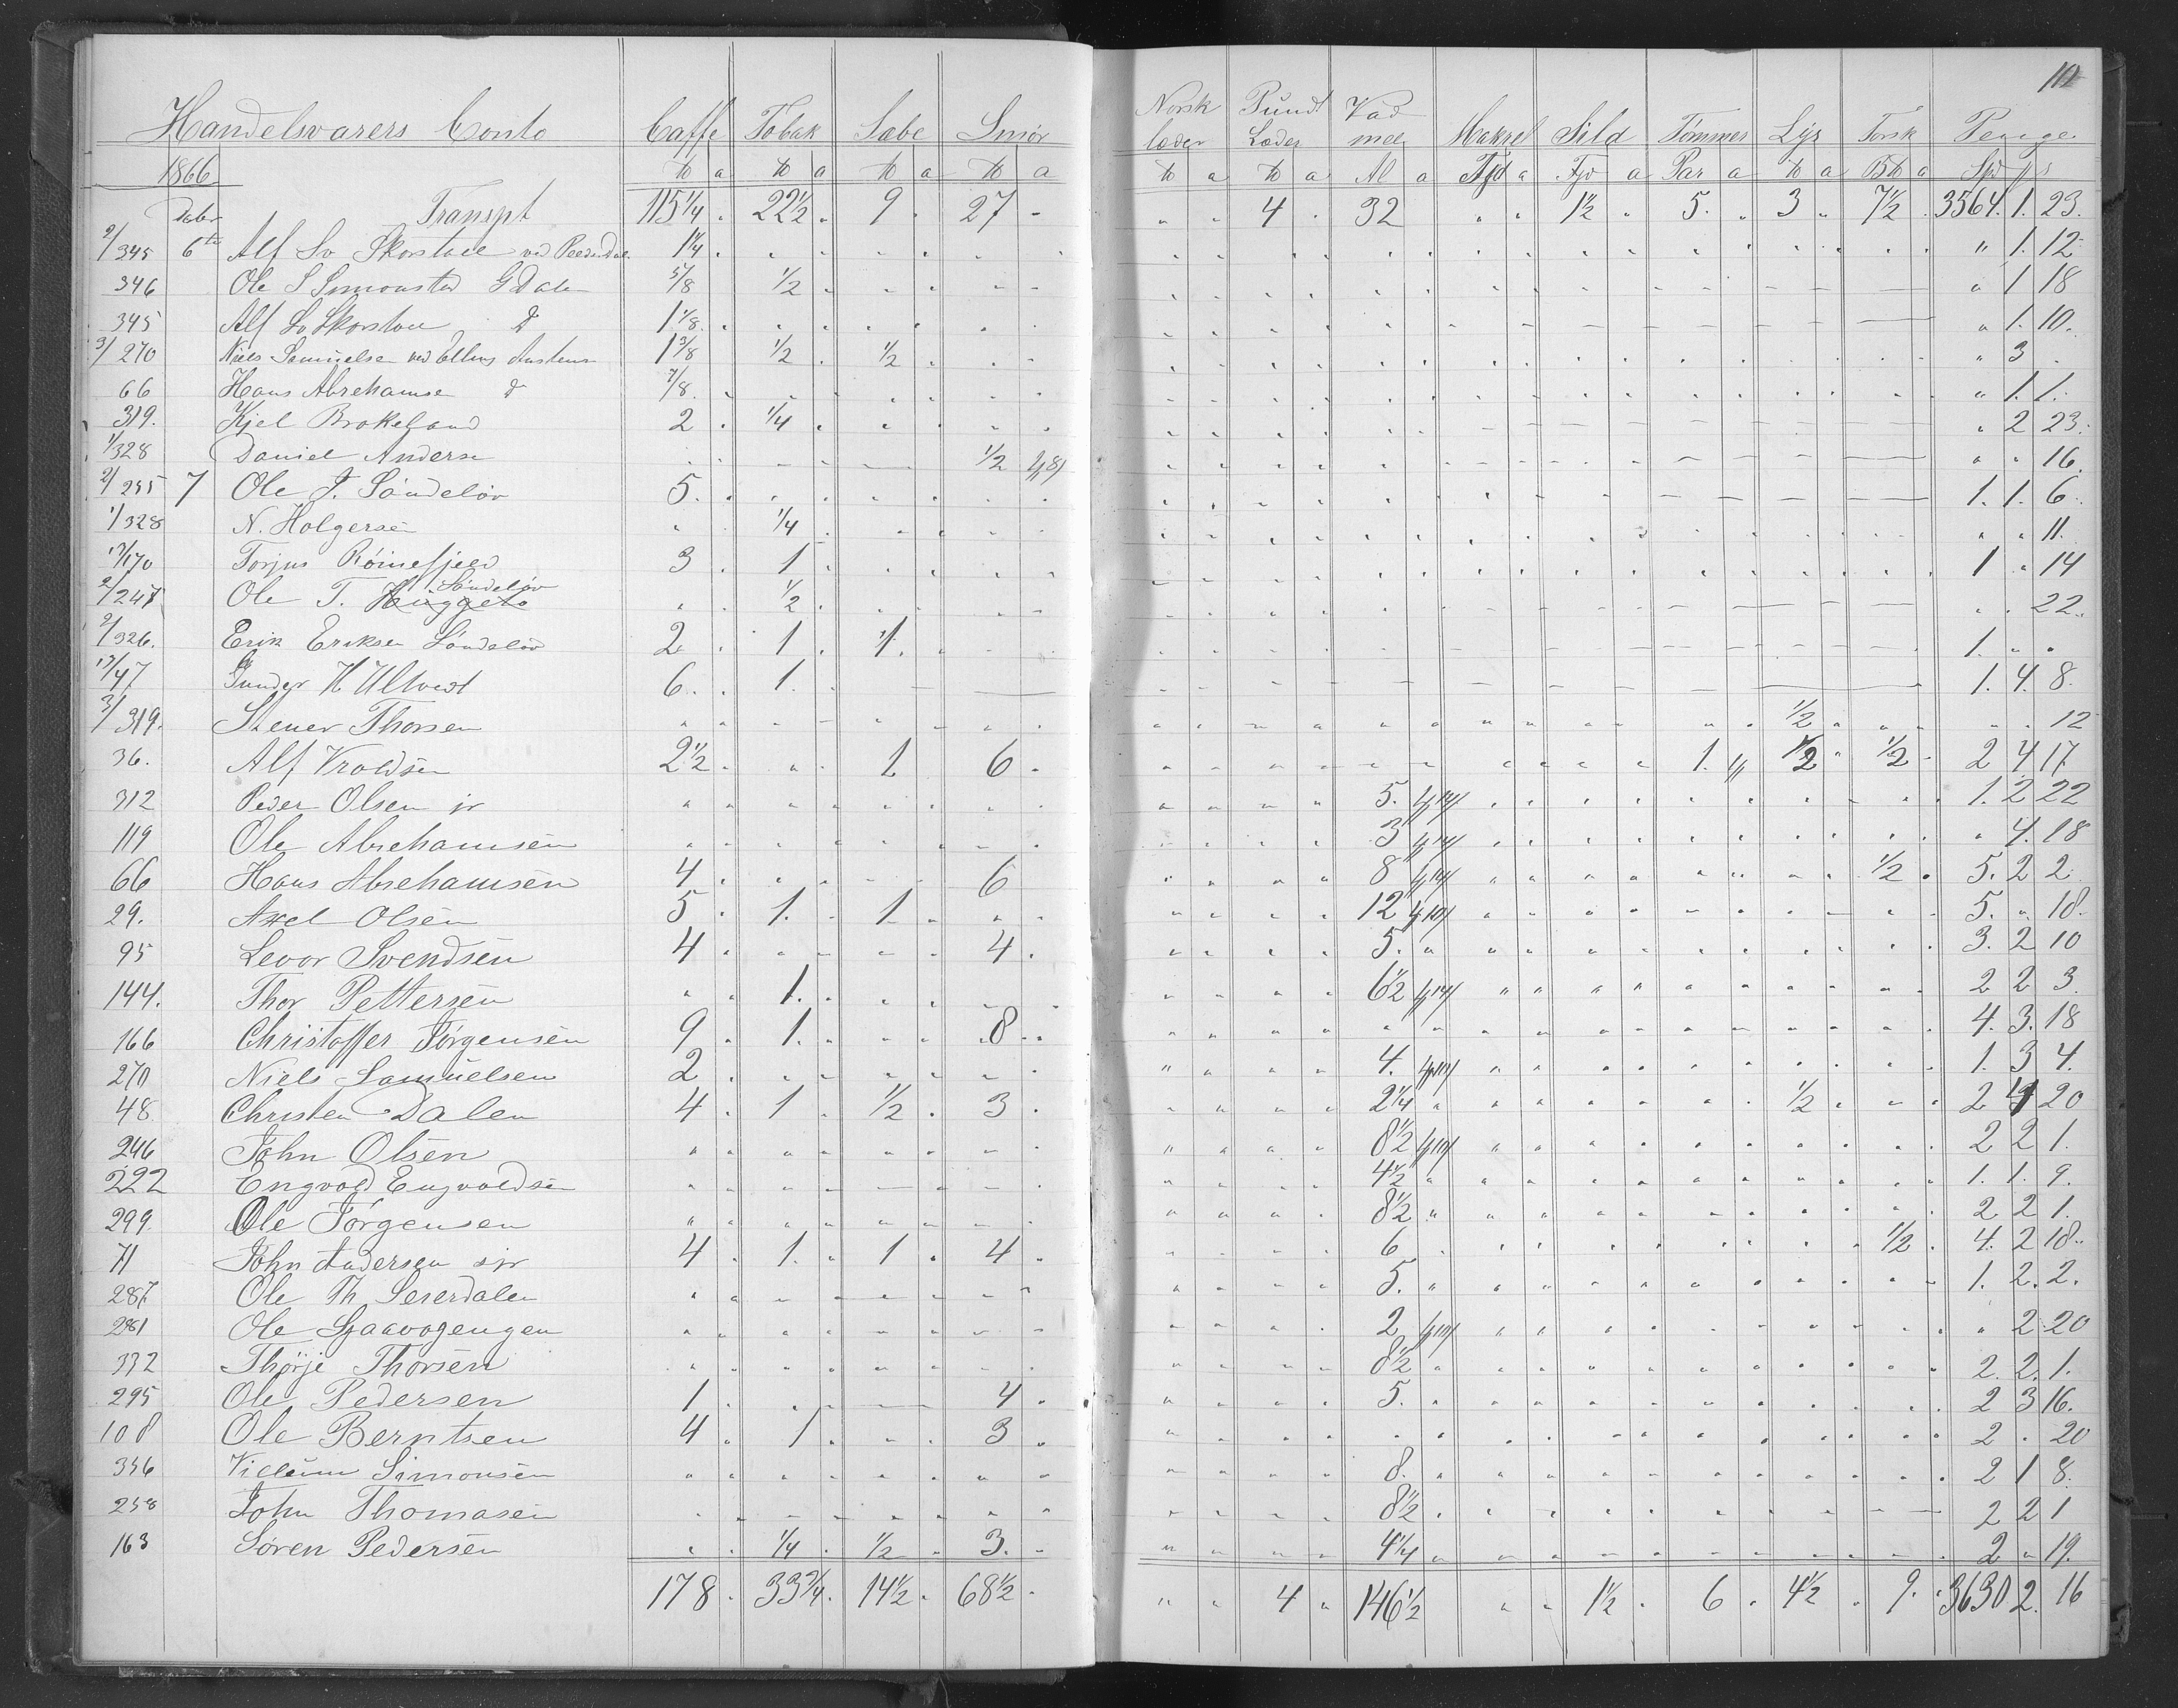 102
Handelsvarers Conto Caffe Tobak Sæbe Smør Norsk læder Pund Læder Vadmel Makrel Sild Tømmer Lys Torsk Penge
1866 ℔ a ℔ a ℔ a ℔ a ℔ a ℔ a Al a Fjd a Fjd a Par a ℔ a B℔ a Spd ß
Transpt 115 1/4 " 22 1/2 " 9 " 27 " " " 4 " 32 " " 1 1/2 " 5 " 3 " 7 1/2 " 3564. 1. 23.
2/345 6te Alf Sv Skorstøl ved 1 1/4 " 1. 12
346 Ole S Simonstad G Dalen 5/8 1/2 " 1 18
345 Alf Sv Skorstøl d 1 1/8 " 1. 10.
3/270 Niels Samuelsen ved Ellens 1 3/8 1/2 1/2 " 3 "
66 Hans Abrehamse d 7/8 " 1. 1.
319. Kjel Brokeland 2 1/4 " 2 23.
1/328 Daniel Anderse 1/2 /8/ " " 16.
2/255 7 Ole T. Søndeløv 5. 1. 1. 6.
1/328 N. Holgersen 1/4 " " 11.
17/170 Torjus Røinefjeld 3 1 1 " 14
2/247 Ole T. Huggeto Søndeløv 1/2 " " 22.
2/326. Erik Eriksen Søndeløv 2 1 1. 1. " "
17/47 Gunder H Ultvedt 6. 1. 1. 4. 8.
3/319. Stener Thorsen 1/2 " " 12
36. Alf Vroldsen 2 1/2 1 6 1. 1/2 1/2 2 4 17
312 Peder Olsen jr 5. /14/ 1. 2 22
119 Ole Abrehamsen 3 /14/ " 4. 18
66 Hans Abrehamsen 4 6 8 /14/ 1/2 5. 2 2
29. Axel Olsen 5 1. 1 12 /10/ 5. " 18.
95 Levor Svendsen 4 4. 5. 3. 2 10
144. Thor Pettersen 1. 6 1/2 /14/ 2 2 3.
166 Christoffer Jørgensen 9 1. 8 4. 3. 18
270 Niels Samuelsen 2 4. /10/ 1. 3 4.
48 Christen Dalen 4 1 1/2 3 2 1/4 1/2 2 4 20
246 John Olsen 8 1/2 /10/ 2 2 1.
222 Engvold Engvoldsen 4 1/2 1. 1. 9.
299. Ole Jørgensen 8 1/2 2 2 1.
71 John Andersen sr 4 1. 1 4 6 1/2 4. 2 18.
287 Ole Th Seierdalen 5. 1. 2. 2.
281 Ole 2 /10/ " 2 20
332 Thorje Thorsen 8 1/2 2. 2. 1.
295 Ole Pedersen 1 4 5. 2 3 16.
108 Ole Berntsen 4 1 3 2 " 20
356 Villum Simonsen 8. 2 1 8.
258 John Thomasen 8 1/2 2 2 1
163 Søren Pedersen 1/4 1/2 3. 4 1/4 2 " 19.
178 " 33 3/4 " 14 1/2 " 68 1/2 " " " 4 " 146 1/2 " " 1 1/2 " 6 " 4 1/2 " 9. " 3630 2. 16